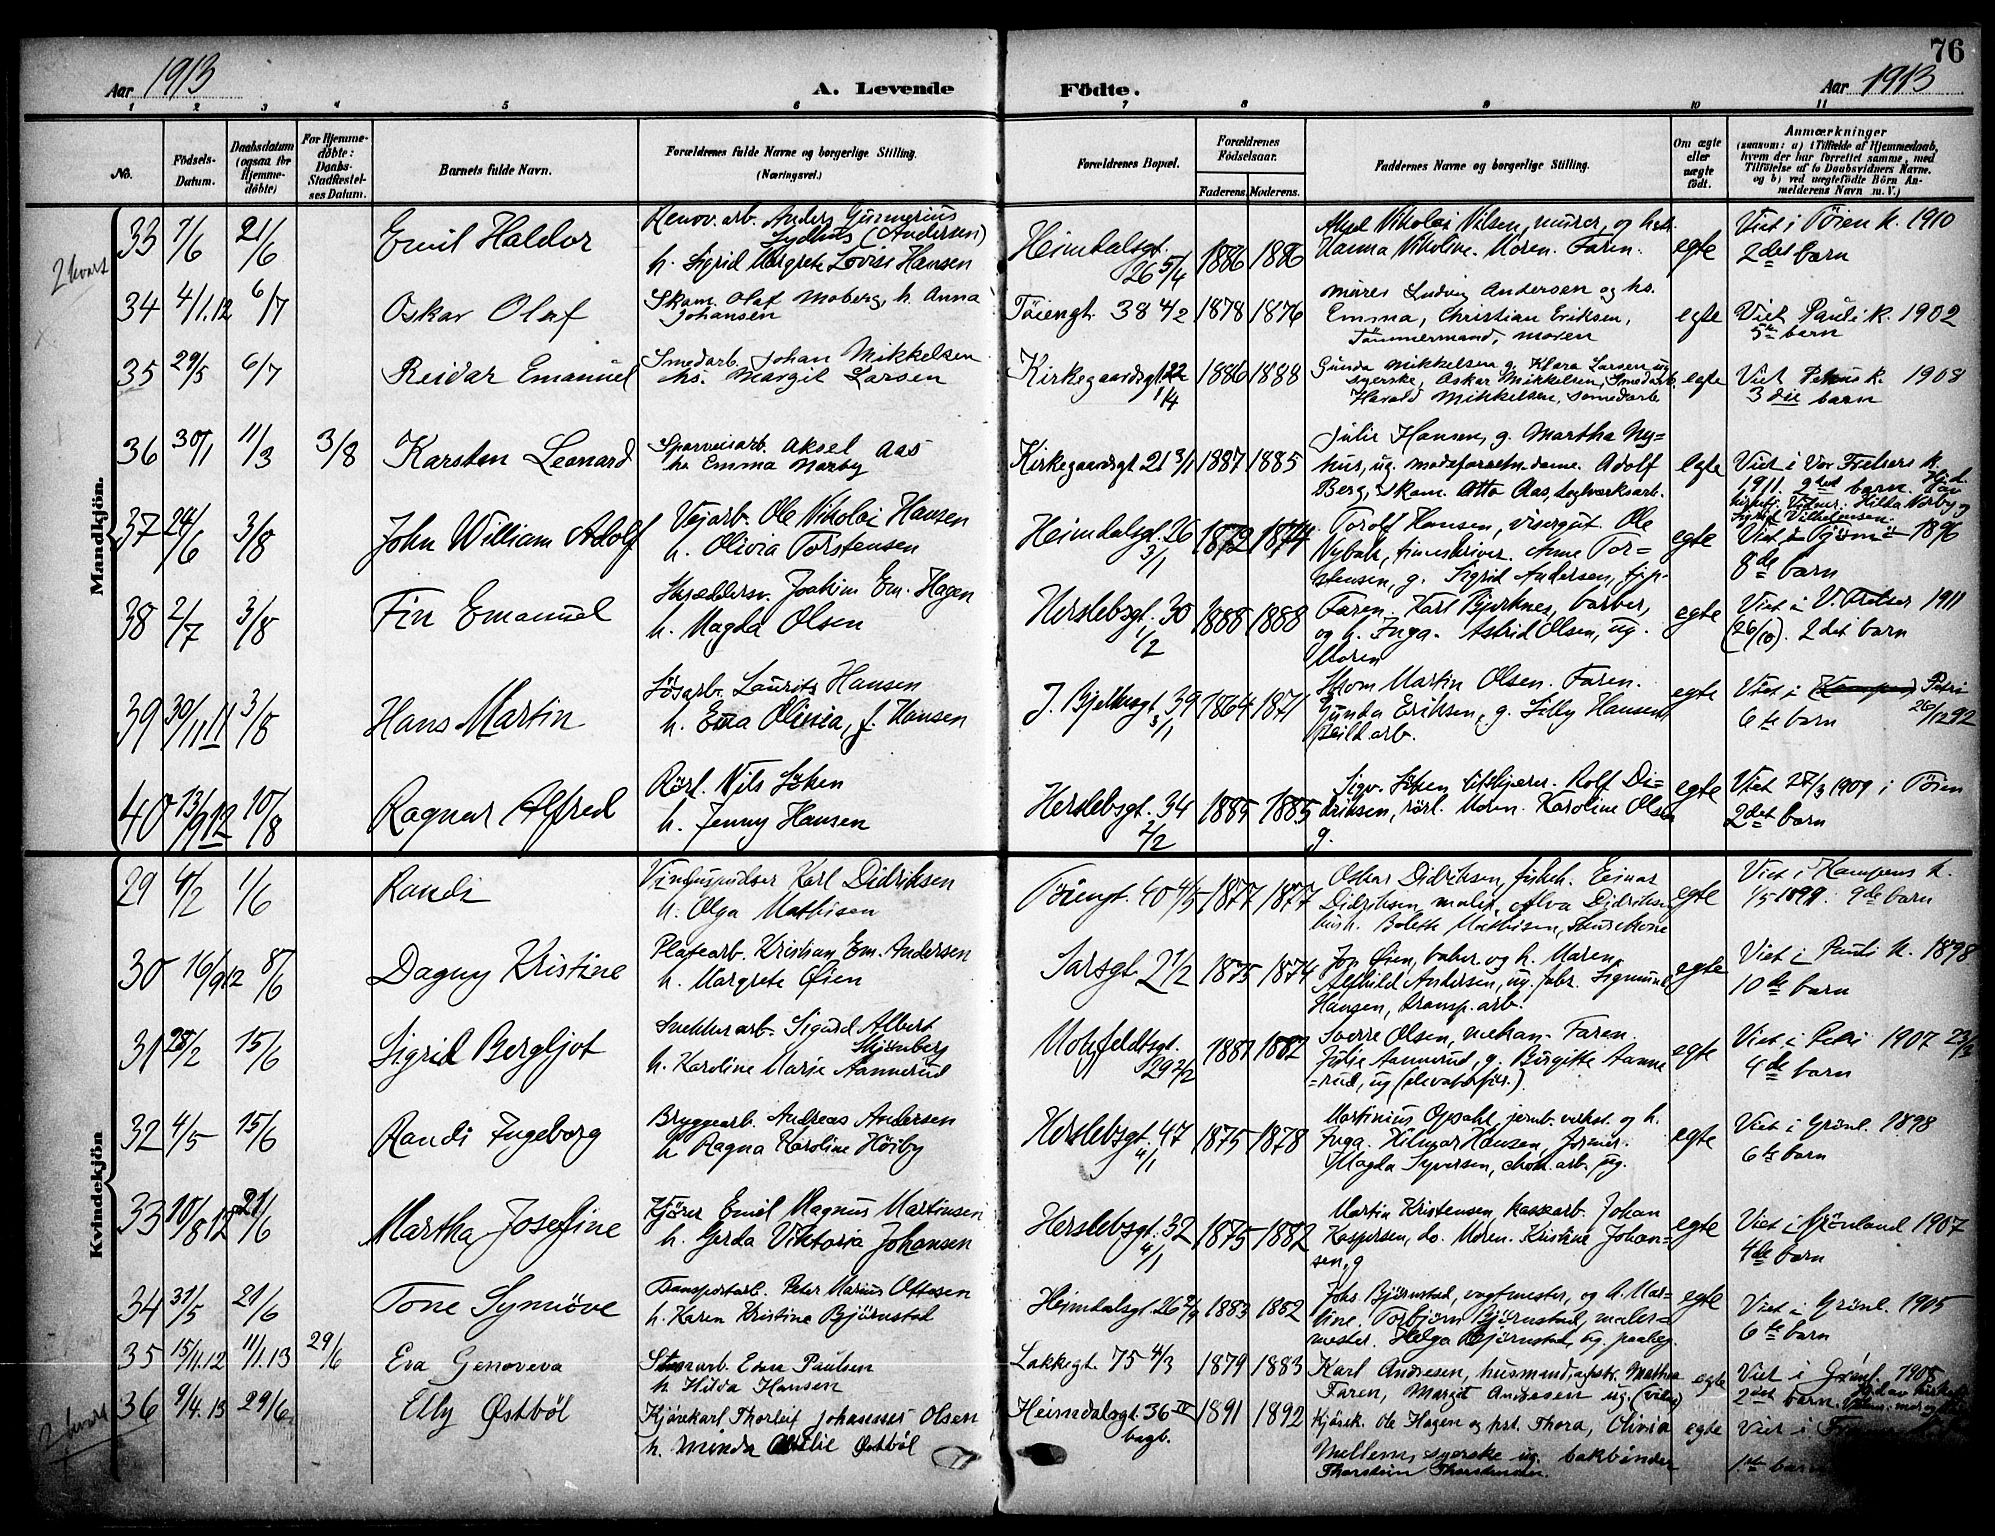 76
Aar 1913
A. Levende Födte.
Aar 1913
1 2 3 4 5 6 7 8 9 10 11
No.
Födsels-Datum.
Daabsdatum (ogsaa for Hjemme-döbte)
For Hjemme-döbte: Daabs-Stadfæstel-ses Datum.
Barnets fulde Navn.
Forældrenes fulde Navne og borgerlige Stilling. (Næringsvei.)
Forældrenes Bopæl.
Forældrenes Födselsaar.
Faderens. Moderens.
Faddernes Navne og borgerlige Stilling.
Om ægte eller uægte födt.
Anmærkninger
(saasom: a) i Tilfælde af Hjemmedaab, hvem der har forrettet samme, med Tilföielse af to Daabsvidners Navne, og b) ved uægtefödte Börn An-melderens Navn m. V.)
Mandkjön.
2 kvart
33 7/6 21/6 Emil Haldor
Renov. arb. Anders Gunnerius
Lydhus (Andersen)
h. Sigrid Margrete Lovise Hansen
Heimdalsgt. 26 5/4 1886 1886
Aksel Nikolai Nilsen, murer, og hstr.
Hanna Nikoline. Moren. Faren.
egte
Viet i Töien k. 1910
2det barn
34 4/1.12 6/7 Oskar Olaf
Skom. Olaf Moberg, h. Anna
Johansen
Töiengt. 38 4/2 1878 1876
Murer Ludvig Andersen og hs.
Emma, Christian Eriksen,
Tömmermand, moren
egte
Viet Pauli k. 1902
5te barn
35 29/5 6/7 Reidar Emanuel
Smedarb. Johan Mikkelsen
hs. Margit Larsen
Kirkegaardsgt. 22 1/4 1886 1888
Gunda Mikkelsen g. Klara Larsen ug.
syerske, Oskar Mikkelsen, Smedarb.
Harald Mikkelsen, smedarb
egte
Viet Petrus k. 1908
3die barn
36 30/1 11/3 3/8 Karsten Leonard
Sporveisarb. Aksel Aas
hs. Emma Narby
Kirkegaardsgt. 21 3/1 1887 1885
Julie Hansen, g. Martha Ny=
hus, ug. modeforretn. dame. Adolf
Berg, skom. Otto Aas, teglverksarb.
egte
Viet i Vor Frelsers k.
1911 2det barn.
37 24/6 3/8 John William Adolf
Vejarb. Ole Nikolai Hansen
h. Olivia Torstensen
Heimdalsgt. 26 3/1 1872 1874
Torolf Hansen, visergut. Ole
Nybak, timeskriver. Anne Tor=
stensen, g. Sigrid Andersen,
egte
1896
8de barn
38 2/7 3/8 Fin Emanuel
Skræddersv. Joakim Em. Hagen
h. Magda Olsen
Herslebsgt. 30 1/2 1888 1888
Faren. Karl Bjerknes, barber,
og h. Inga. Astrid Olsen, ug.
Moren
egte
Viet i V. Frelser 1911
(26/10). 2det barn
39 30/11 11 3/8 Hans Martin
Lösarb. Laurits Hansen
h. Ema Olivia, f. Hansen
J. Bjelkesgt. 39 3/1 1864 1871
Skom Martin Olsen. Faren.
Gunda Eriksen, g. Lilly Hansen,
egte
Viet i Kampen Petri
6te barn 26/12 92
40 13/9 12 10/8 Ragnar Alfred
Rörl. Nils Löken
h. Jenny Hansen
Herslebsgt. 34 2/2 1885 1885
Sigv. Löken, Rolf Di-
driksen, rörl. Moren. Karoline Olsen
g.
egte
Viet 27/3 1909 i Töien
2det barn
Kvindekjön
29 4/2 1/6 Randi
Vinduspudser Karl Didriksen
h. Olga Mathisen
Töiengt. 40 4/5 1877 1877
Oskar Didriksen, fiskeh. Einar
Didriksen, maler, Alva Didriksen,
hush. Bolette Mathisen,
egte
Viet i Kampens k.
1/5 1899. 9de barn
30 16/9 12 8/6 Dagny Kristine
Platearb. Kristian Em. Andersen
h. Margrete Öien
Sarsgt. 2 1/2 1875 1874
Jon Öien, baker og h. Maren,
Alfhild Andersen, ug. fabr. Sigmund
Hansen, transp. arb.
egte
Viet i Pauli k. 1898
10de barn
31 28/2 15/6 Sigrid Bergljot
Snekkerarb. Sigurd Albert
Stjernberg
h. Karoline Marie Aannerud
Motzfeldtsgt. 29 2/2 1881 1882
Sverre Olsen, mekan. Faren.
Julie Aannerud, g. Birgitte Aanne
=rud, ug
egte
Viet i Petri 1907 23/3
4de barn
32 4/5 15/6 Randi Ingeborg
Bryggearb. Andreas Andersen
h Ragna Karoline Höiby
Herslebsgt. 47 4/1 1875 1878
Martinius Opsahl, jernb. og h.
Inga. Hilmar Hansen, former.
Magda Syversen, chok. arb. ug.
egte
Viet i Grönl. 1898
6te barn
33 10/8 12 21/6 Martha Josefine
Kjörer Emil Magnus Martinsen
h. Gerda Viktoria Johansen
Herslebsgt. 32 4/1 1875 1882
Martin Kristensen, kassearb. Johan
Kaspersen, do. Moren. Kristine Johan-
sen, g
egte
Viet i Grönland 1907
4de barn
34 31/5 21/6 Tone Synnöve
Transportarb. Peter Marius Ottesen
h. Karen Kristine Björnstad
Heimdalsgt. 26 1883 1882
Johs. Björnstad, vogtmester, og h. Mar-
tine. Torbjörn Björnstad, maler-
mester. Helga Björnstad,
egte
Viet i Grönl. 1905
6te barn
35 15/11.12 11/1.13 29/6 Eva Genoveva
Stenarb. Even Paulsen
h. Hilda Hansen
Lakkegt. 75 4/3 1879 1883
Karl Andresen, husmand, Mathea
Faren, Margit Andresen ug.
egte
Viet i Grönl. 1908
2det barn.
36 9/4.13 29/6 Elly Østböl
Kjörekarl Thorleif Johannes Olsen
h. Minda Østböl
Heimdalsgt. 36 IV bagb. 1891 1892
Kjörek. Ole Hagen og hst. Thora, Olivia
Mellem, syerske ug. bokbinder
Thorstein
egte
Viet i
1ste barn
2 kvart